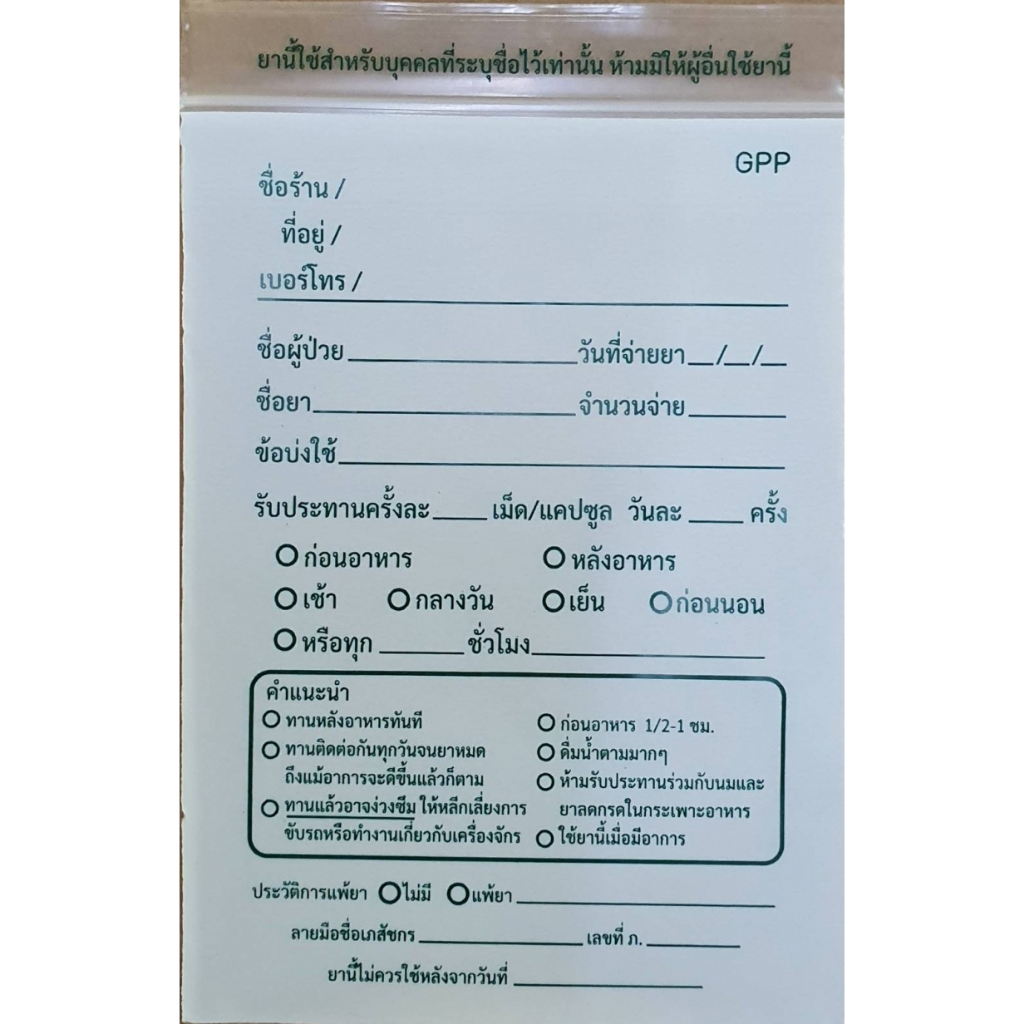 ยานี้ใช้สำหรับบุคคลที่ระบุชื่อไว้เท่านั้น ห้ามมิให้ผู้อื่นใช้ยานี้
GPP
ชื่อร้าน /
ที่อยู่ /
เบอร์โทร /
ชื่อผู้ป่วย____________________วันที่จ่ายยา__/__/__
ชื่อยา_______________________จำนวนจ่าย________
ข้อบ่งใช้________________________________________
รับประทานครั้งละ_____เม็ด/แคปซูล วันละ_____ครั้ง
○ ก่อนอาหาร ○ หลังอาหาร
○ เช้า ○ กลางวัน ○ เย็น ○ ก่อนนอน
○ หรือทุก_______ชั่วโมง____________________
คำแนะนำ
○ ทานหลังอาหารทันที ○ ก่อนอาหาร 1/2-1 ชม.
○ ทานติดต่อกันทุกวันจนยาหมด ○ ดื่มน้ำตามมากๆ
ถึงแม้อาการจะดีขึ้นแล้วก็ตาม ○ ห้ามรับประทานร่วมกับนมและ
○ ทานแล้วอาจง่วงซึม ให้หลีกเลี่ยงการ ยาลดกรดในกระเพาะอาหาร
ขับรถหรือทำงานเกี่ยวกับเครื่องจักร ○ ใช้ยานี้เมื่อมีอาการ
ประวัติการแพ้ยา ○ ไม่มี ○ แพ้ยา__________________________
ลายมือชื่อเภสัชกร________________เลขที่ ภ.__________
ยานี้ไม่ควรใช้หลังจากวันที่____________________